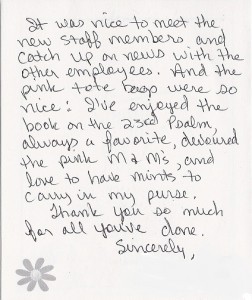 It was nice to meet the
new staff members and
catch up on news with the
other employees. And the
pink tote bags were so
nice! I've enjoyed the
book on the 23rd Psalm,
always a favorite, devoured
the pink M & M's, and
love to have mints to
carry in my purse.
Thank you so much
for all you've done.
Sincerely,